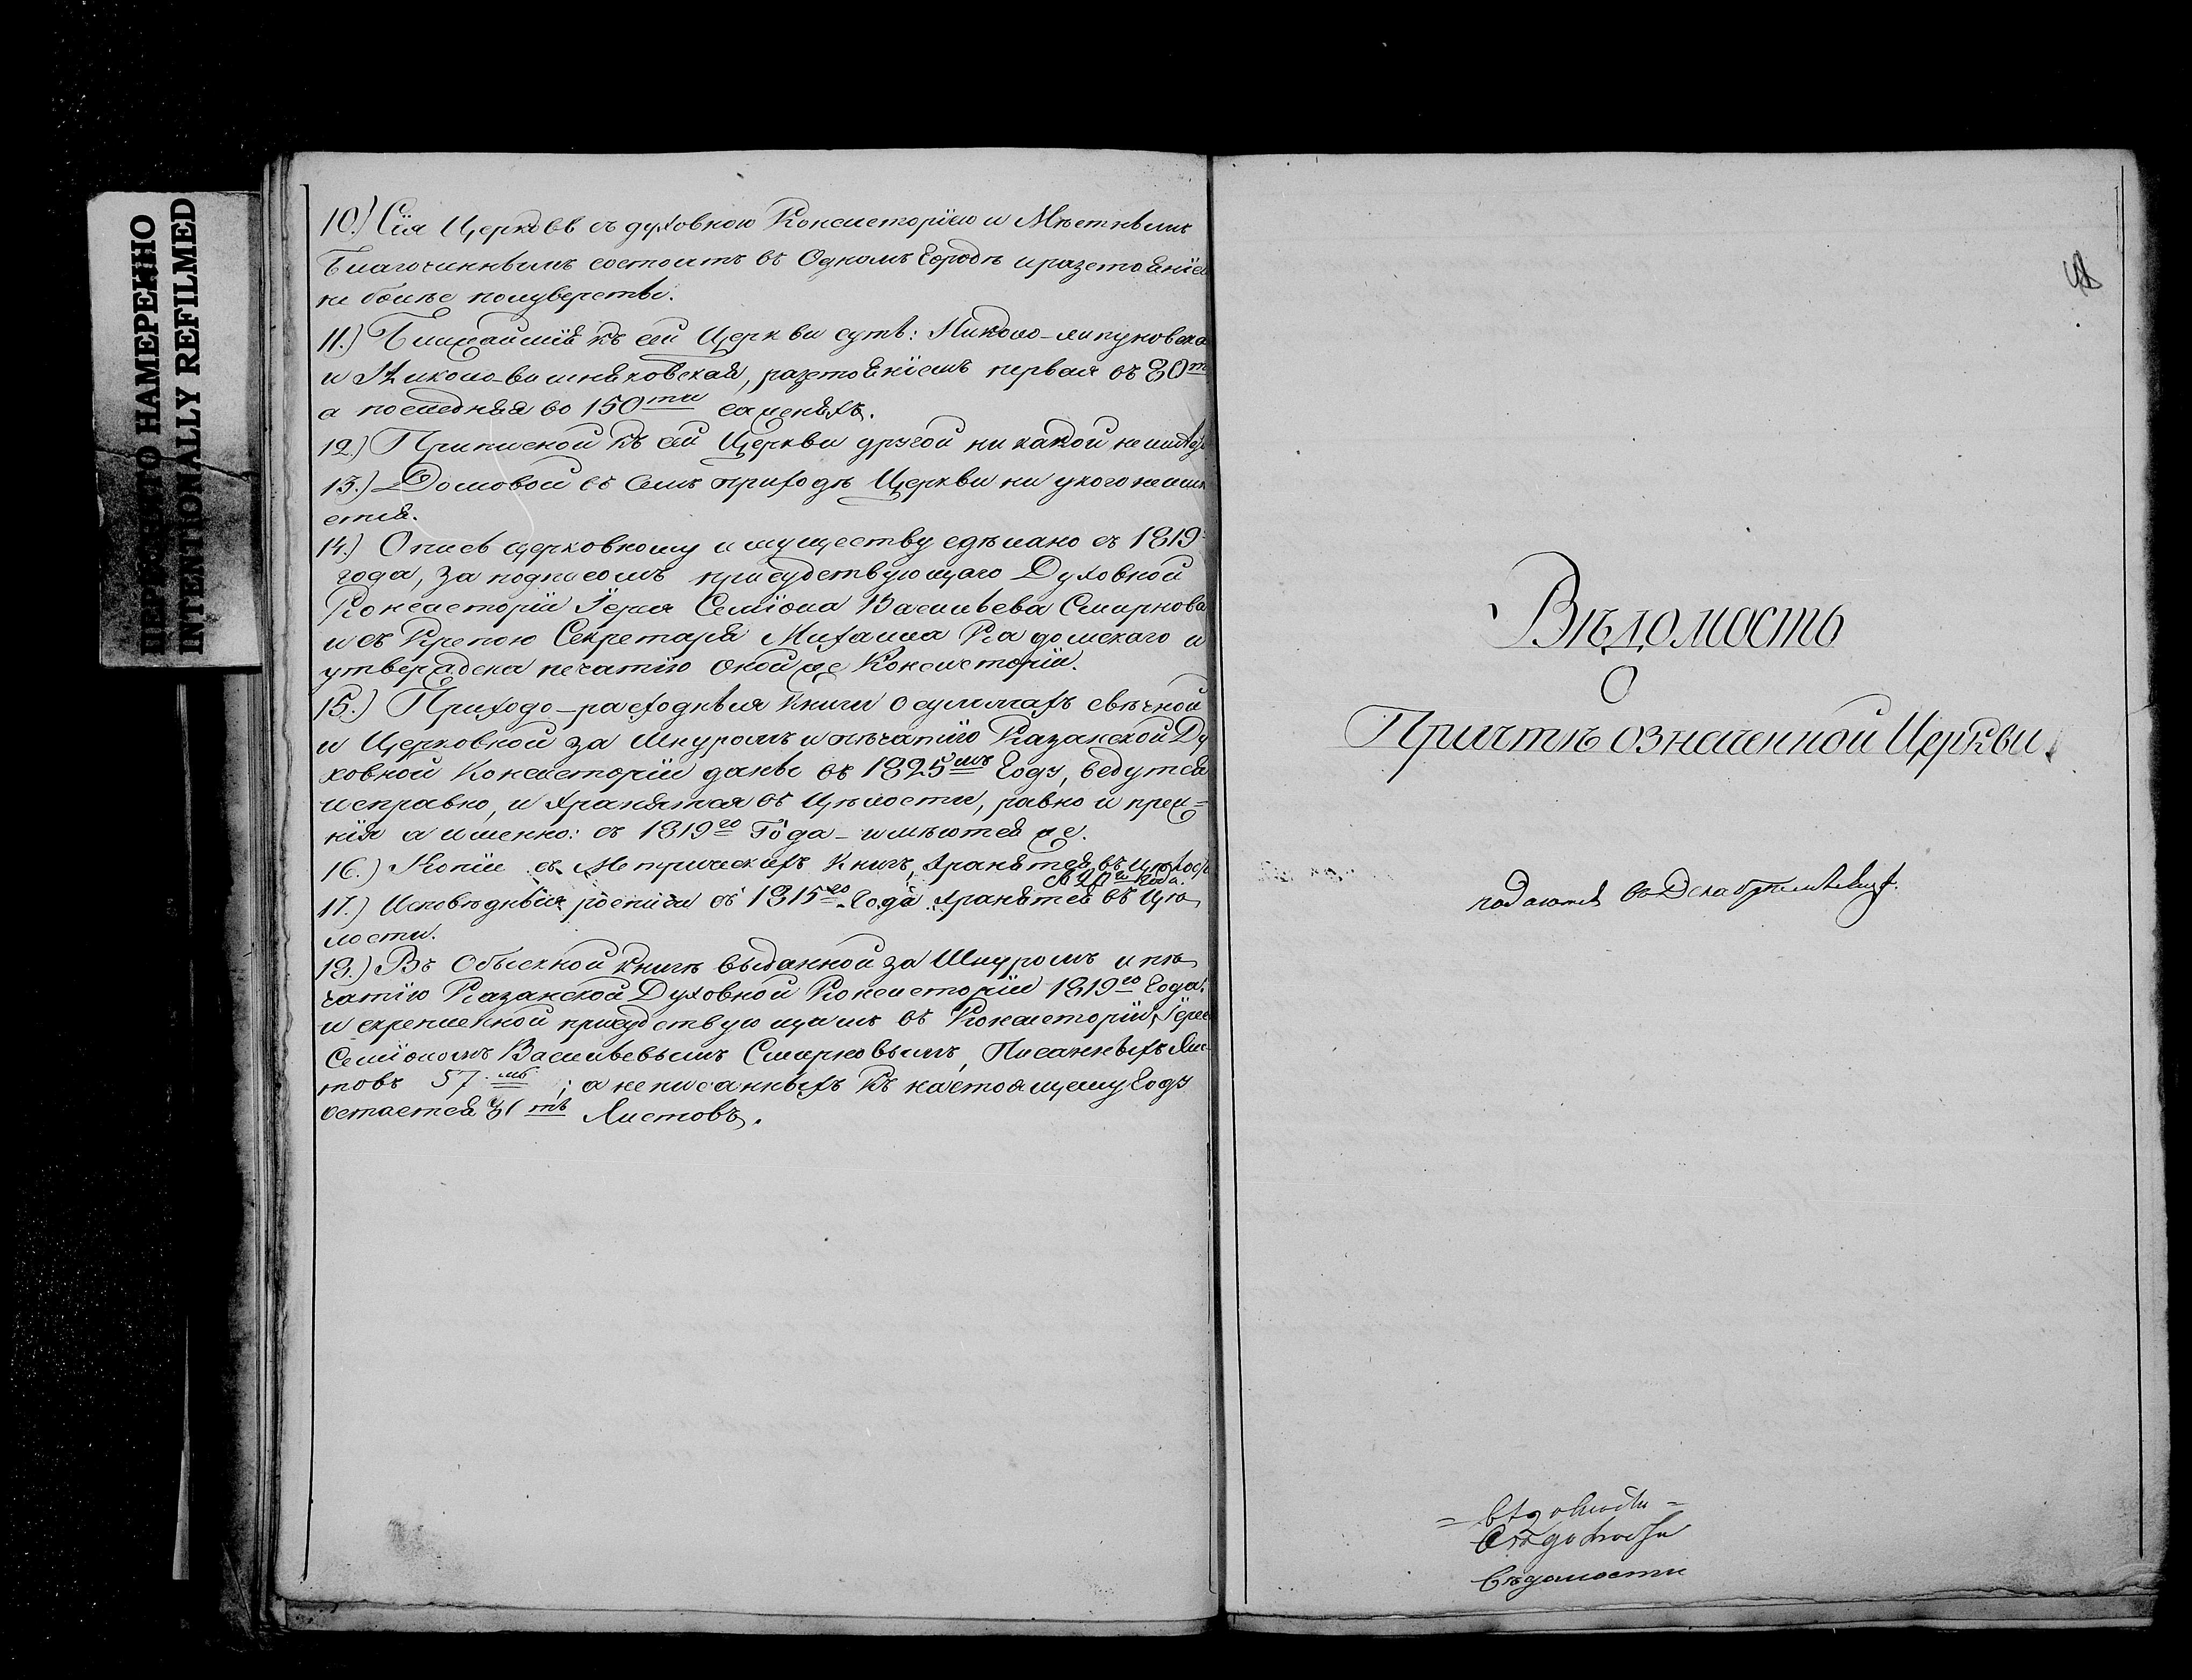 ПЕРЕСНЯТО НАМЕРЕННО
INTENTIONALLY REFILMED
10.) Сія Церковь съ духовною Консисторіею и Мѣстнымъ
Благочиннымъ состоитъ въ Одномъ Городѣ и разстояніем
не болѣе полуверсты.
11.) Ближайшія къ сей Церкви суть: Николо-ляпуновска
и Николо-вишняковская, разстояніемъ первая въ 80
а последняя во 150ти саженяхъ.
12.) Приписной къ сей Церкви другой ни какой не имѣе
13.) Домовой въ семъ приходѣ Церкви ни укого не имѣ
ется.
14.) Опись церковному имуществу сдѣлано съ 1819
года, за подписомъ присудствующаго Духовной
Консисторіи Іерея Семіона Васильева Смирнова
и съ Крепою Секретаря Михаила Радомскаго и
утверждена печатію оной же Консисторіи.
15.) Приходо-расходныя Книги о суммахъ свѣчной
и Церковной за Шнуромъ и пѣчатію Казанской Ду
ховной Консисторіи даны въ 1825мъ Году, ведутся
исправно, и хранятся въ Цѣлости, равно и преж=
нія а именно: съ 1819го Года - имѣются же.
16.) Копіи съ Метрическихъ Книгъ, хранятся въ цѣлос
Года.
17.) Исповѣдныя росписи съ 1815го Года хранятся въ Цѣ
лости.
18.) Въ Обыскной книгѣ выданной за Шнуромъ и пѣ
чатію Казанской Духовной Консисторіи 1819го Года
и скрепленной присудствующимъ въ Консисторіи, Іерее
Семіономъ Васильевымъ Смирновымъ, Писанныхъ Лис-
товъ 57мь; а неписанныхъ къ настоящему Году
остается 31 Листовъ.
Вѣдомость
О
Причтѣ означенной Церкви.
подается въ Декабрѣ
= вѣдомости =
Вѣдомости
Вѣдомости